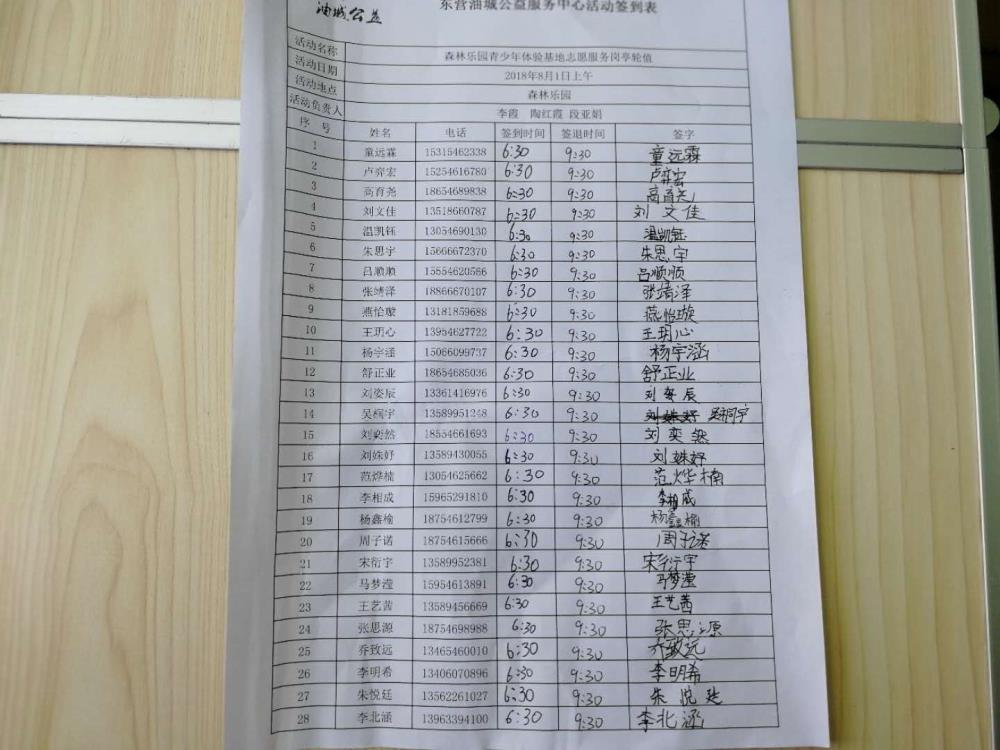 油城公益
东营油城公益服务中心活动签到表
活动名称 森林乐园青少年体验基地志愿服务岗亭轮值
活动日期 2018年8月1日上午
活动地点 森林乐园
活动负责人 李霞 陶红霞 段亚娟
序号 姓名 电话 签到时间 签退时间 签字
1 童远霖 15315462338 6:30 9:30 童远霖
2 卢弈宏 15254616780 6:30 9:30 卢弈宏
3 高育尧 18654689838 6:30 9:30 高育尧
4 刘文佳 13518660787 6:30 9:30 刘文佳
5 温凯钰 13054690130 6:30 9:30 温凯钰
6 朱思宇 15666672370 6:30 9:30 朱思宇
7 吕顺顺 15554620566 6:30 9:30 吕顺顺
8 张靖泽 18866670107 6:30 9:30 张靖泽
9 燕怡璇 13181859688 6:30 9:30 燕怡璇
10 王玥心 13954627722 6:30 9:30 王玥心
11 杨宇涵 15066099737 6:30 9:30 杨宇涵
12 舒正业 18654685036 6:30 9:30 舒正业
13 刘姿辰 13361416976 6:30 9:30 刘姿辰
14 吴桐宇 13589951248 6:30 9:30 刘姝妤 吴桐宇
15 刘奕然 18554661693 6:30 9:30 刘奕然
16 刘姝妤 13589430055 6:30 9:30 刘姝妤
17 范烨楠 13054625662 6:30 9:30 范烨楠
18 李相成 15965291810 6:30 9:30 李相成
19 杨鑫榆 18754612799 6:30 9:30 杨鑫榆
20 周子诺 18754615666 6:30 9:30 周子诺
21 宋衍宇 13589952381 6:30 9:30 宋衍宇
22 马梦滢 15954613891 6:30 9:30 马梦滢
23 王艺茜 13589456669 6:30 9:30 王艺茜
24 张思源 18754698988 6:30 9:30 张思源
25 乔致远 13465460010 6:30 9:30 乔致远
26 李明希 13406070896 6:30 9:30 李明希
27 朱悦廷 13562261027 6:30 9:30 朱悦廷
28 李北涵 13963394100 6:30 9:30 李北涵